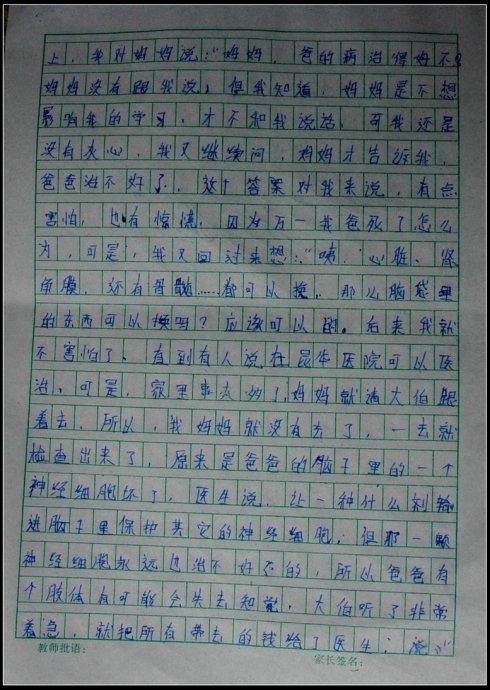 上，我对妈妈说：“妈妈，爸的病治得好不？
妈妈没有跟我说，但我知道，妈妈是不想
影响我的学习，才不和我说话，可我还是
没有灰心，我又继续问，妈妈才告诉我，
爸爸治不好了，这个答案对我来说，有点
害怕，也有惊慌，因为万一我爸死了怎么
为，可是，我又回过来想：“咦，心脏、肾
角膜，还有骨髓……都可以换，那么脑袋里
的东西可以换吗？应该可以的。后来我就
不害怕了、直到有人说在昆华医院可以医
治，可是，家里事太多了，妈妈就请大伯跟
着去，所以，我妈妈就没有去了，一去就
检查出来了，原来是爸爸的脑子里的一个
神经细胞坏了，医生说，让一种什么剂输
进脑子里保护其它的神经细胞，但那一颗
神经细胞永远也治不好了的，所以爸爸有
个肢体有可能会失去知觉，大伯听了非常
着急，就把所有带去的钱给了医生，
教师批语：
家长签名：